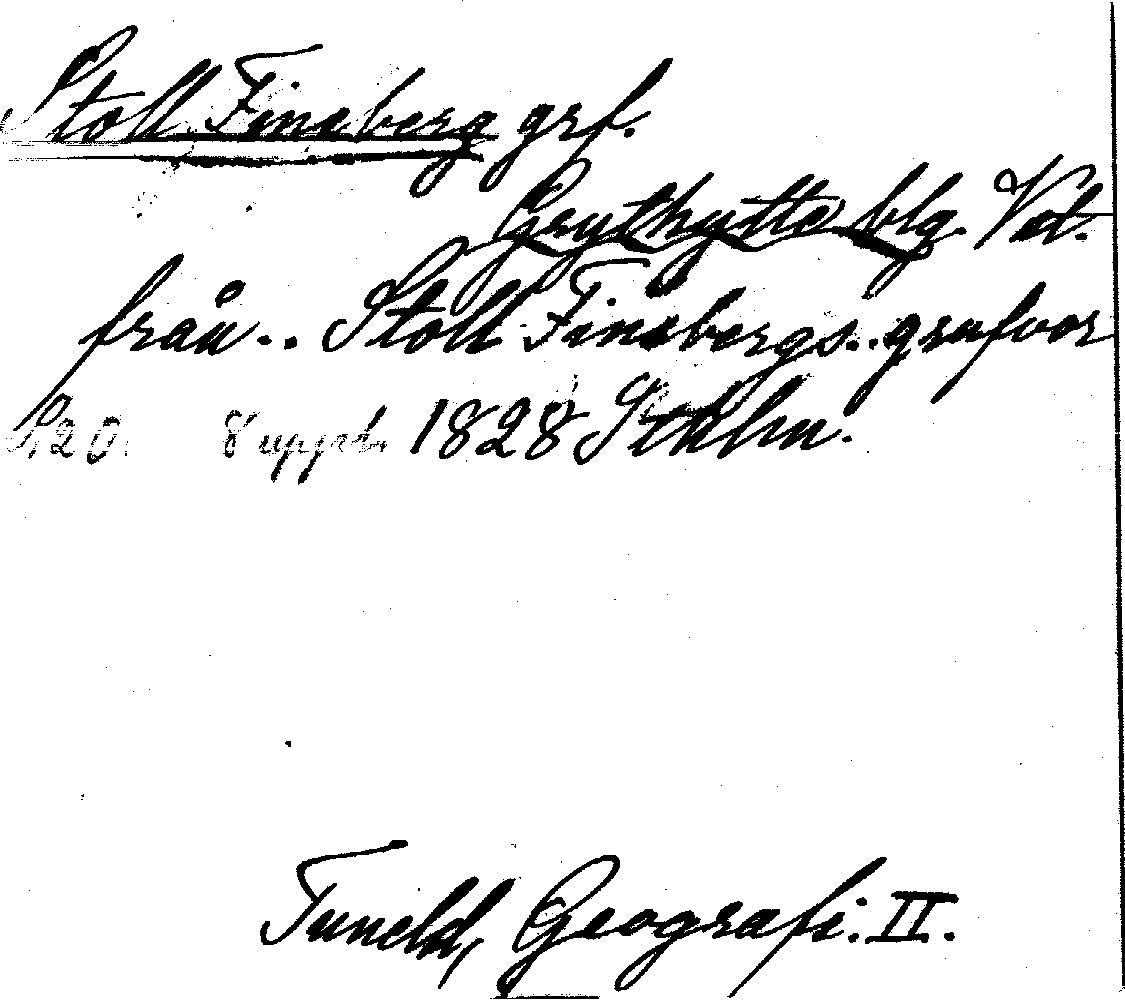 Stoll Finsberg grf.
Grythytte blg. Vstl.
från.. Stoll Finsbergs..grufvor
S. 20. 8 uppl. 1828 Sthlm.
Tuneld, Geografi. II.